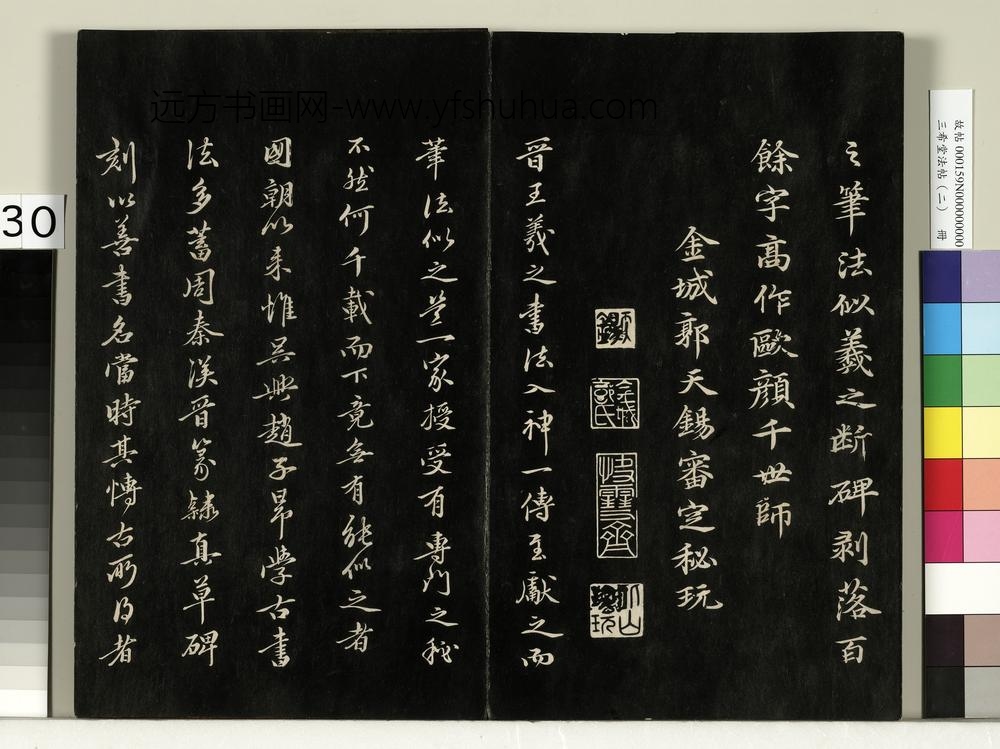 之筆法似羲之断碑剥落百
餘字高作歐顔千世師
金城郭天錫審定秘玩
金城郭氏
晉王羲之書法入神一傳至獻之而
筆法似之蓋一家授受有專門之秘
不然何千載而下竟無有能似之者
國朝以来惟吴興趙子昂學古書
法多蓄周秦漢晉篆隸真草碑
刻以善書名當時其慱古所得者
远方书画网-www.yfshuhua.com
故帖 000159N000000000
三希堂法帖（二） 冊
30